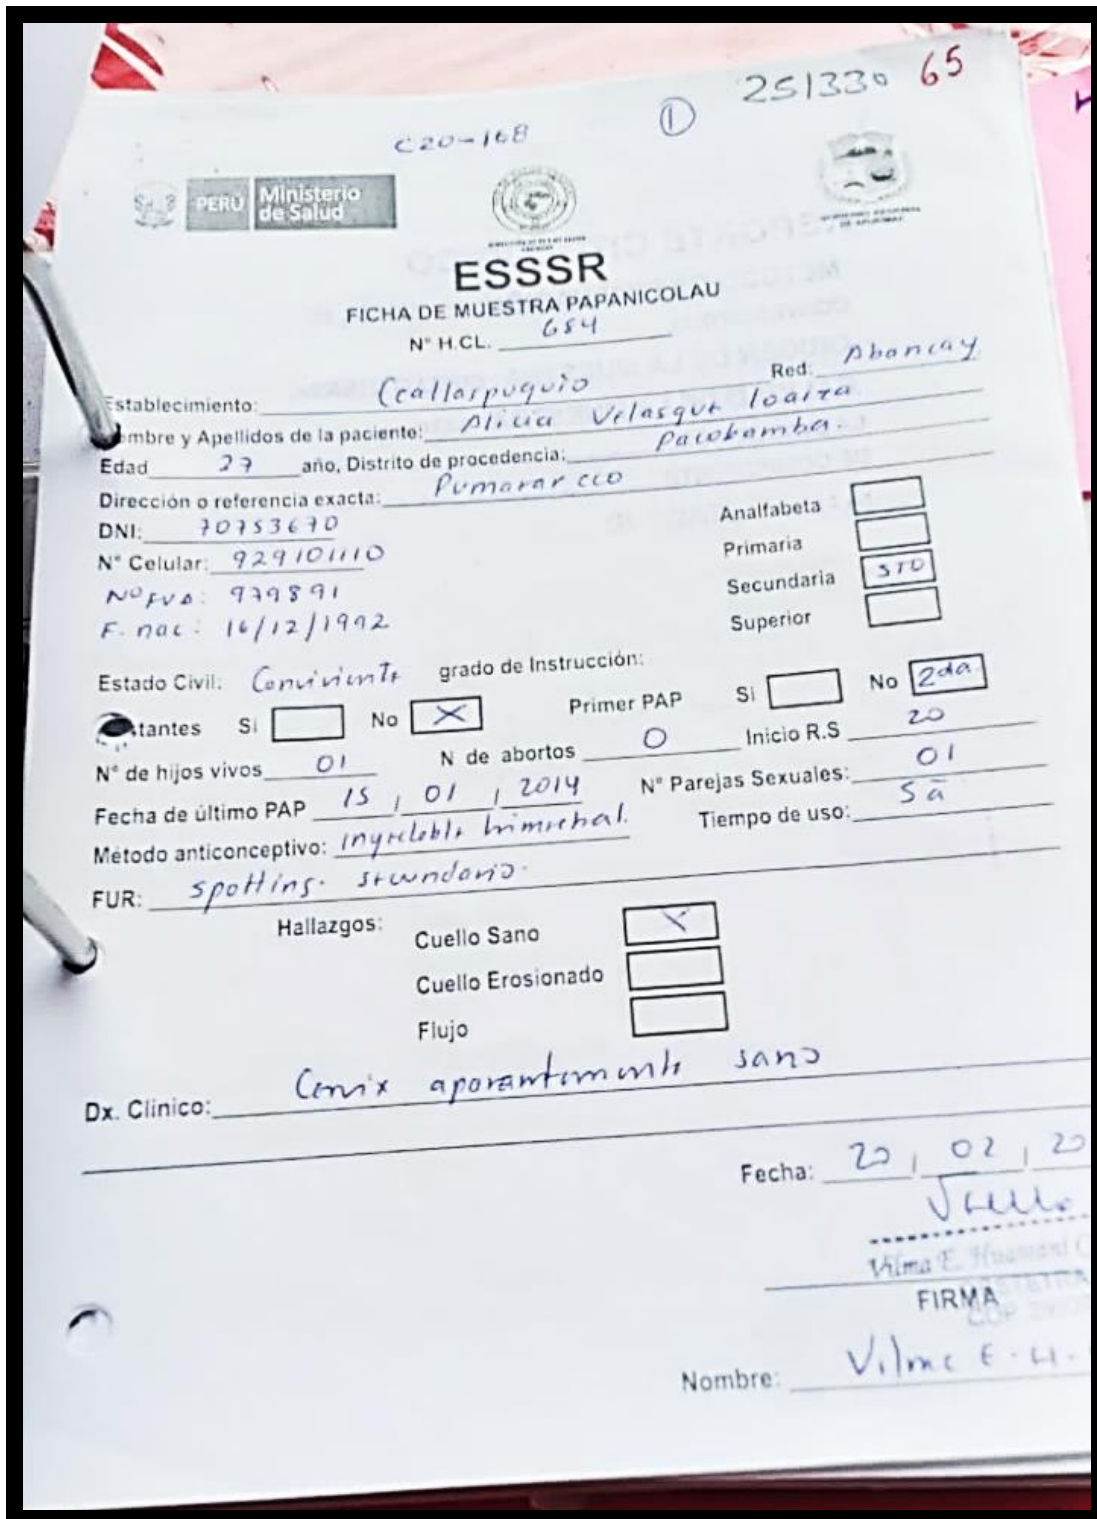 251330 65
C20-168 1
PERÚ Ministerio de Salud
ESSSR
FICHA DE MUESTRA PAPANICOLAU
N° H.CL. 684
Establecimiento: Ccallaspuquio Red: Abancay
mbre y Apellidos de la paciente: Alicia Velasque loaiza
Edad 27 año, Distrito de procedencia: Pacobamba.
Dirección o referencia exacta: Pumararcco
DNI: 70753670
N° Celular: 929101110
N° FUA: 979891
F. nac: 16/12/1992
Analfabeta
Primaria
Secundaria 5TO
Superior
Estado Civil: Conviviente grado de Instrucción:
tantes Si No X Primer PAP Si No 2da.
N° de hijos vivos 01 N de abortos 0 Inicio R.S 20
Fecha de último PAP 15 / 01 / 2014 N° Parejas Sexuales: 01
Método anticonceptivo: inyectable trimestral. Tiempo de uso: 5a
FUR: spotting. secundario.
Hallazgos: Cuello Sano X
Cuello Erosionado
Flujo
Dx. Clínico: Cervix aparentemente sano
Fecha: 20 / 02 / 20
Vilma E. Huamani C
FIRMA
Nombre: Vilma E. H.